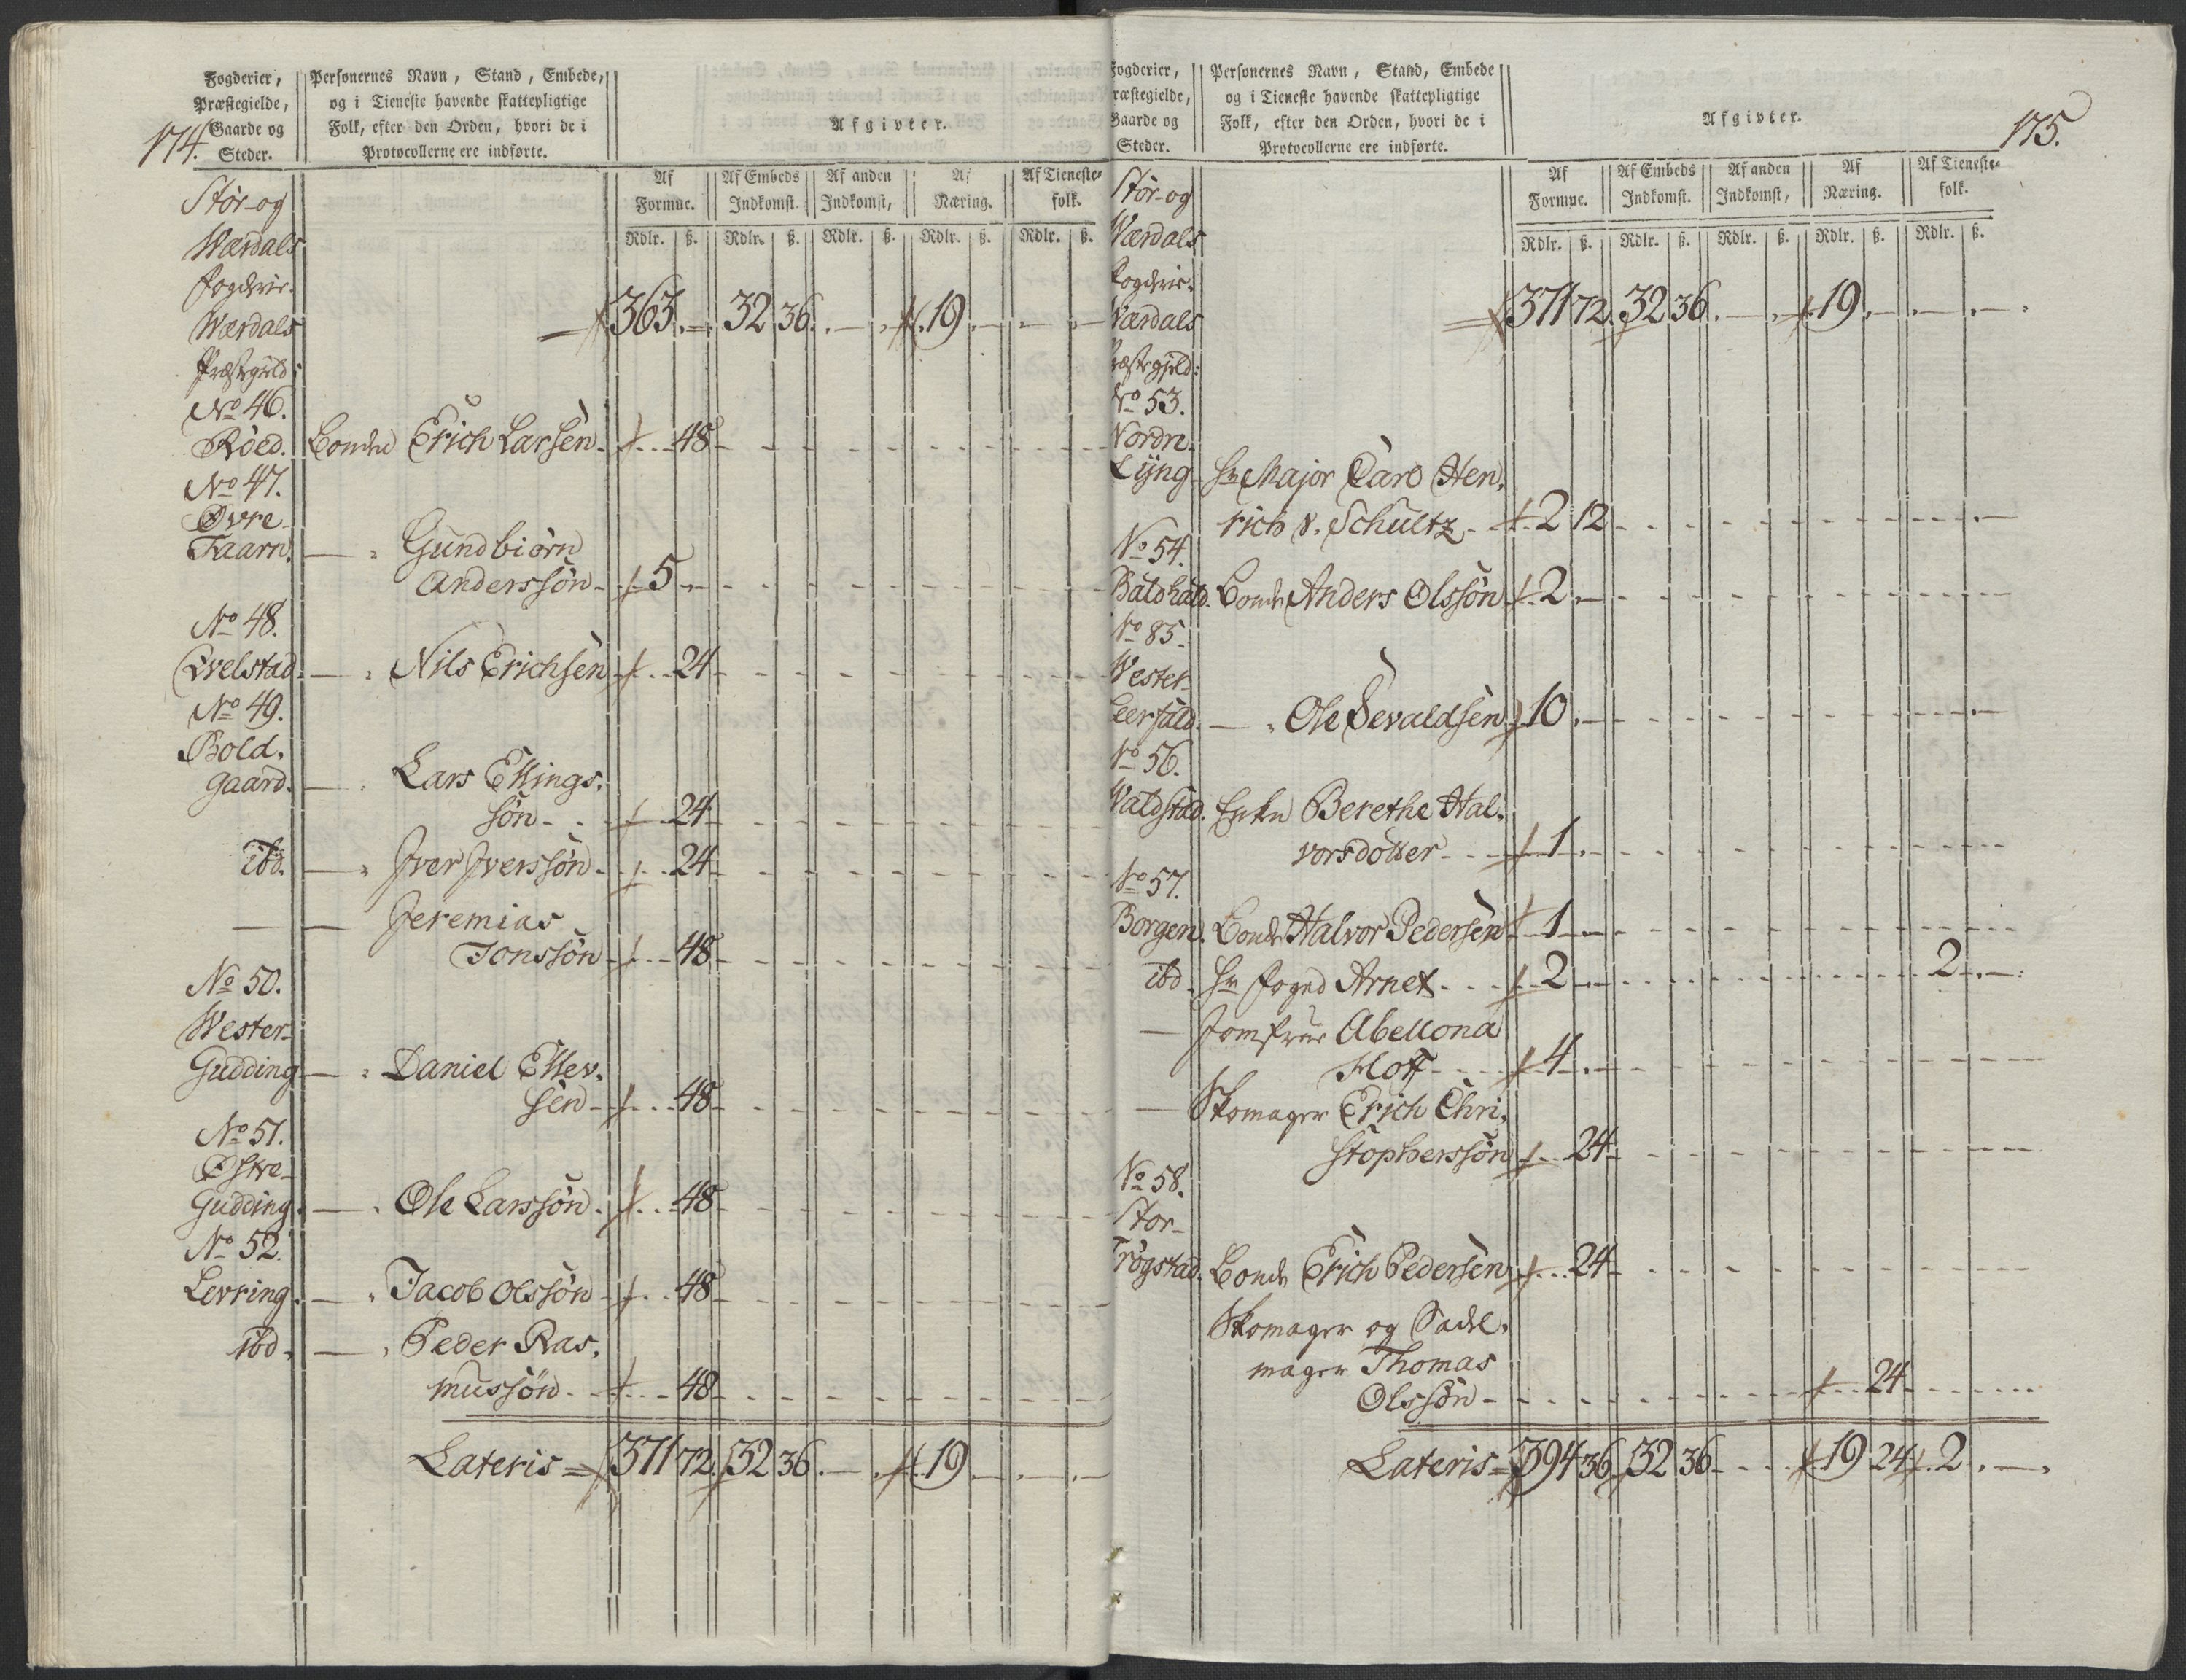 174.
Fogderier,
Præstegielde,
Gaarde og
Steder.
Personernes Navn, Stand, Embede,
og i Tieneste havende skattepligtige
Folk, efter den Orden, hvori de i
Protocollerne ere indførte.
Afgivter.
Af Formue. Af Embeds Indkomst. Af anden Indkomst, Af Næring. Af Tieneste-folk.
Rdlr. ß. Rdlr. ß. Rdlr. ß. Rdlr. ß. Rdlr. ß.
Stör-og
Wærdals
Fogderie.
Wærdals 363. 32 36. 19
Præstegield:
No 46.
Röed. Bonde Erich Larsen 48
No 47.
Øvre
Faarn. Gundbiörn
Anderssön 5
No 48.
Qvelstad Nils Erichsen 24
No 49.
Bold.
gaard. Lars Ellings.
sön 24
ibd. Iver Iverssön 24
Jeremias
Jonssön 48
No 50.
Wester-
Gudding Daniel Ellev.
sen 48
No 51.
Østre
Gudding Ole Larssön 48
No 52.
Levring. Jacob Olssön 48
ibd. Peder Ras.
mussön 48
Lateris 371 72. 32 36. 19
175.
Fogderier,
Præstegielde,
Gaarde og
Steder.
Personernes Navn, Stand, Embede
og i Tieneste havende skattepligtige
Folk, efter den Orden, hvori de i
Protocollerne ere indførte.
Afgivter.
Af Formue. Af Embeds Indkomst. Af anden Indkomst, Af Næring. Af Tieneste-folk.
Rdlr. ß. Rdlr. ß. Rdlr. ß. Rdlr. ß. Rdlr. ß.
Stör-og
Wærdals
Fogderie.
Wærdals 371 72. 32 36. 19
Præstegjeld:
No 53.
Nordre
Lÿng Hr Major Carl Hen.
rich v. Schultz 2 12
No 54.
Baldhald. Bonde Anders Olssön 2
No 85.
Wester
Leerfald. Ole Sevaldsen 10
No 56.
Waldstad. Enke Berethe Hal.
vorsdotter 1
No 57.
Borgen. Bonde Halvor Pedersen 1
ibd. Hr Foged Arnet 2 2
Jomfrue Abellona
Hoff 4
Skomager Erich Chri.
stopherssön 24
No 58.
Stor-
Trögstad. Bonde Erich Pedersen 24
Skomager og Sadel.
mager Thomas
Olssön 24
Lateris 394 36 32 36 19 24 2